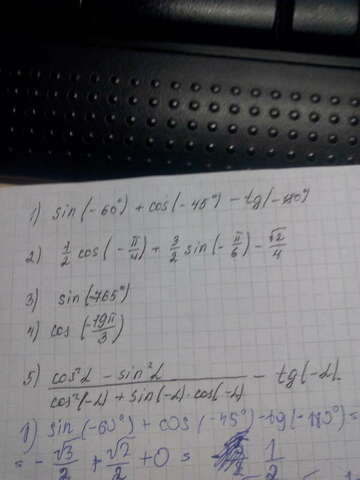 1) sin(-60°) + cos(-45°) - tg(-180°)
2) 1/2 cos(-π/4) + 3/2 sin(-π/6) - √2/4
3) sin(-765°)
4) cos(-19π/3)
5) (cos²α - sin²α)/(cos²(-α) + sin(-α)·cos(-α)) - tg(-α).
1) sin(-60°) + cos(-45°) - tg(-180°) =
= -√3/2 + √2/2 + 0 = 1/2